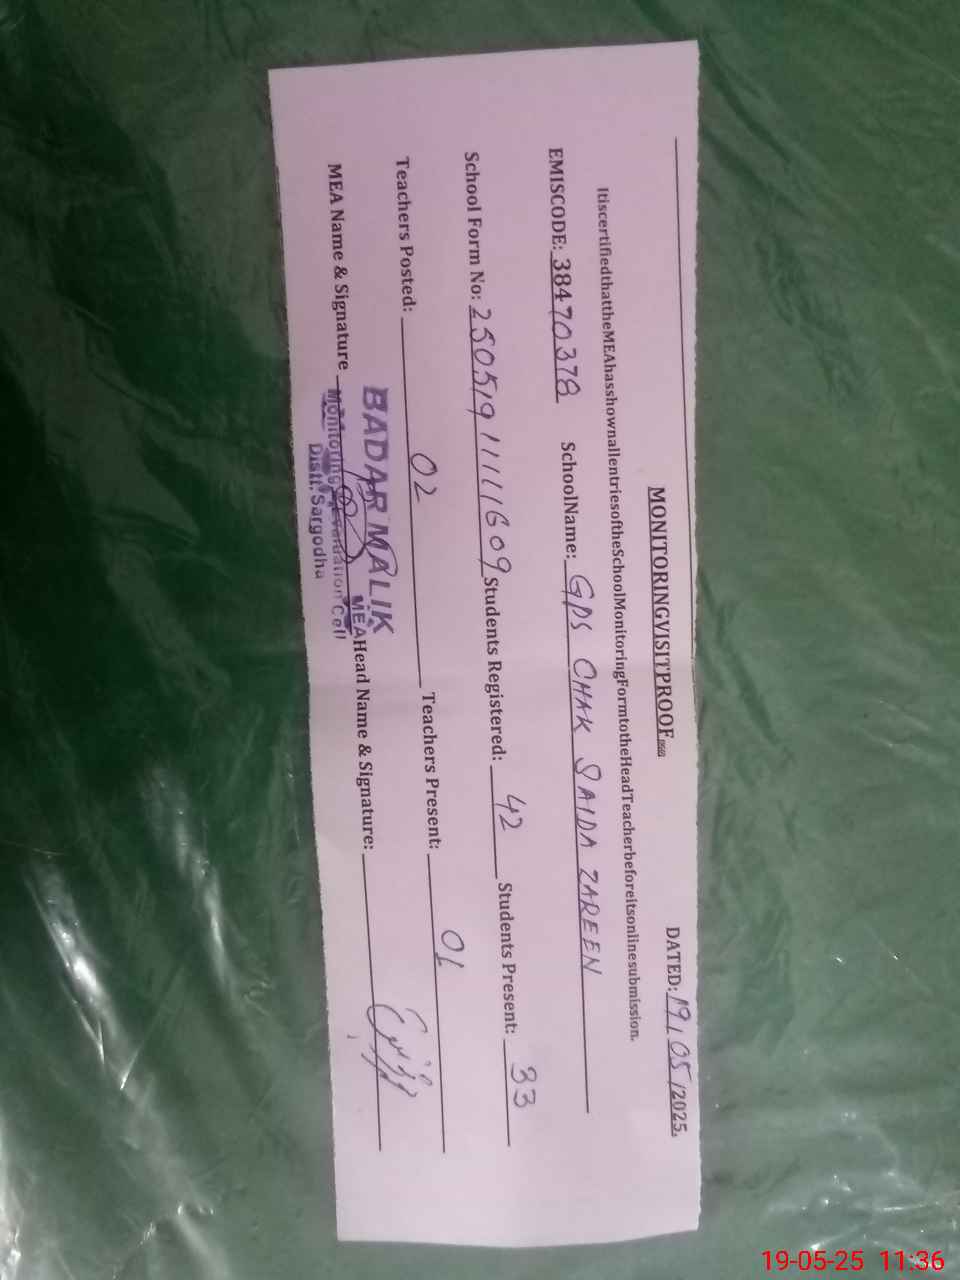 MONITORINGVISITPROOF
DATED: 19/05/2025.
ItiscertifiedthattheMEAhasshownallentriesoftheSchoolMonitoringFormtotheHeadTeacherbeforeitsonlinesubmission.
EMISCODE: 38470378 SchoolName: GPS CHAK SAIDA ZAREEN
School Form No: 250519 Students Registered: 42 Students Present: 33
Teachers Posted: 02 Teachers Present: 01
MEA Name & Signature Head Name & Signature:
BADAR MALIK
MEA
Monitoring & Evaluation Cell
Distt. Sargodha
19-05-25 11:36